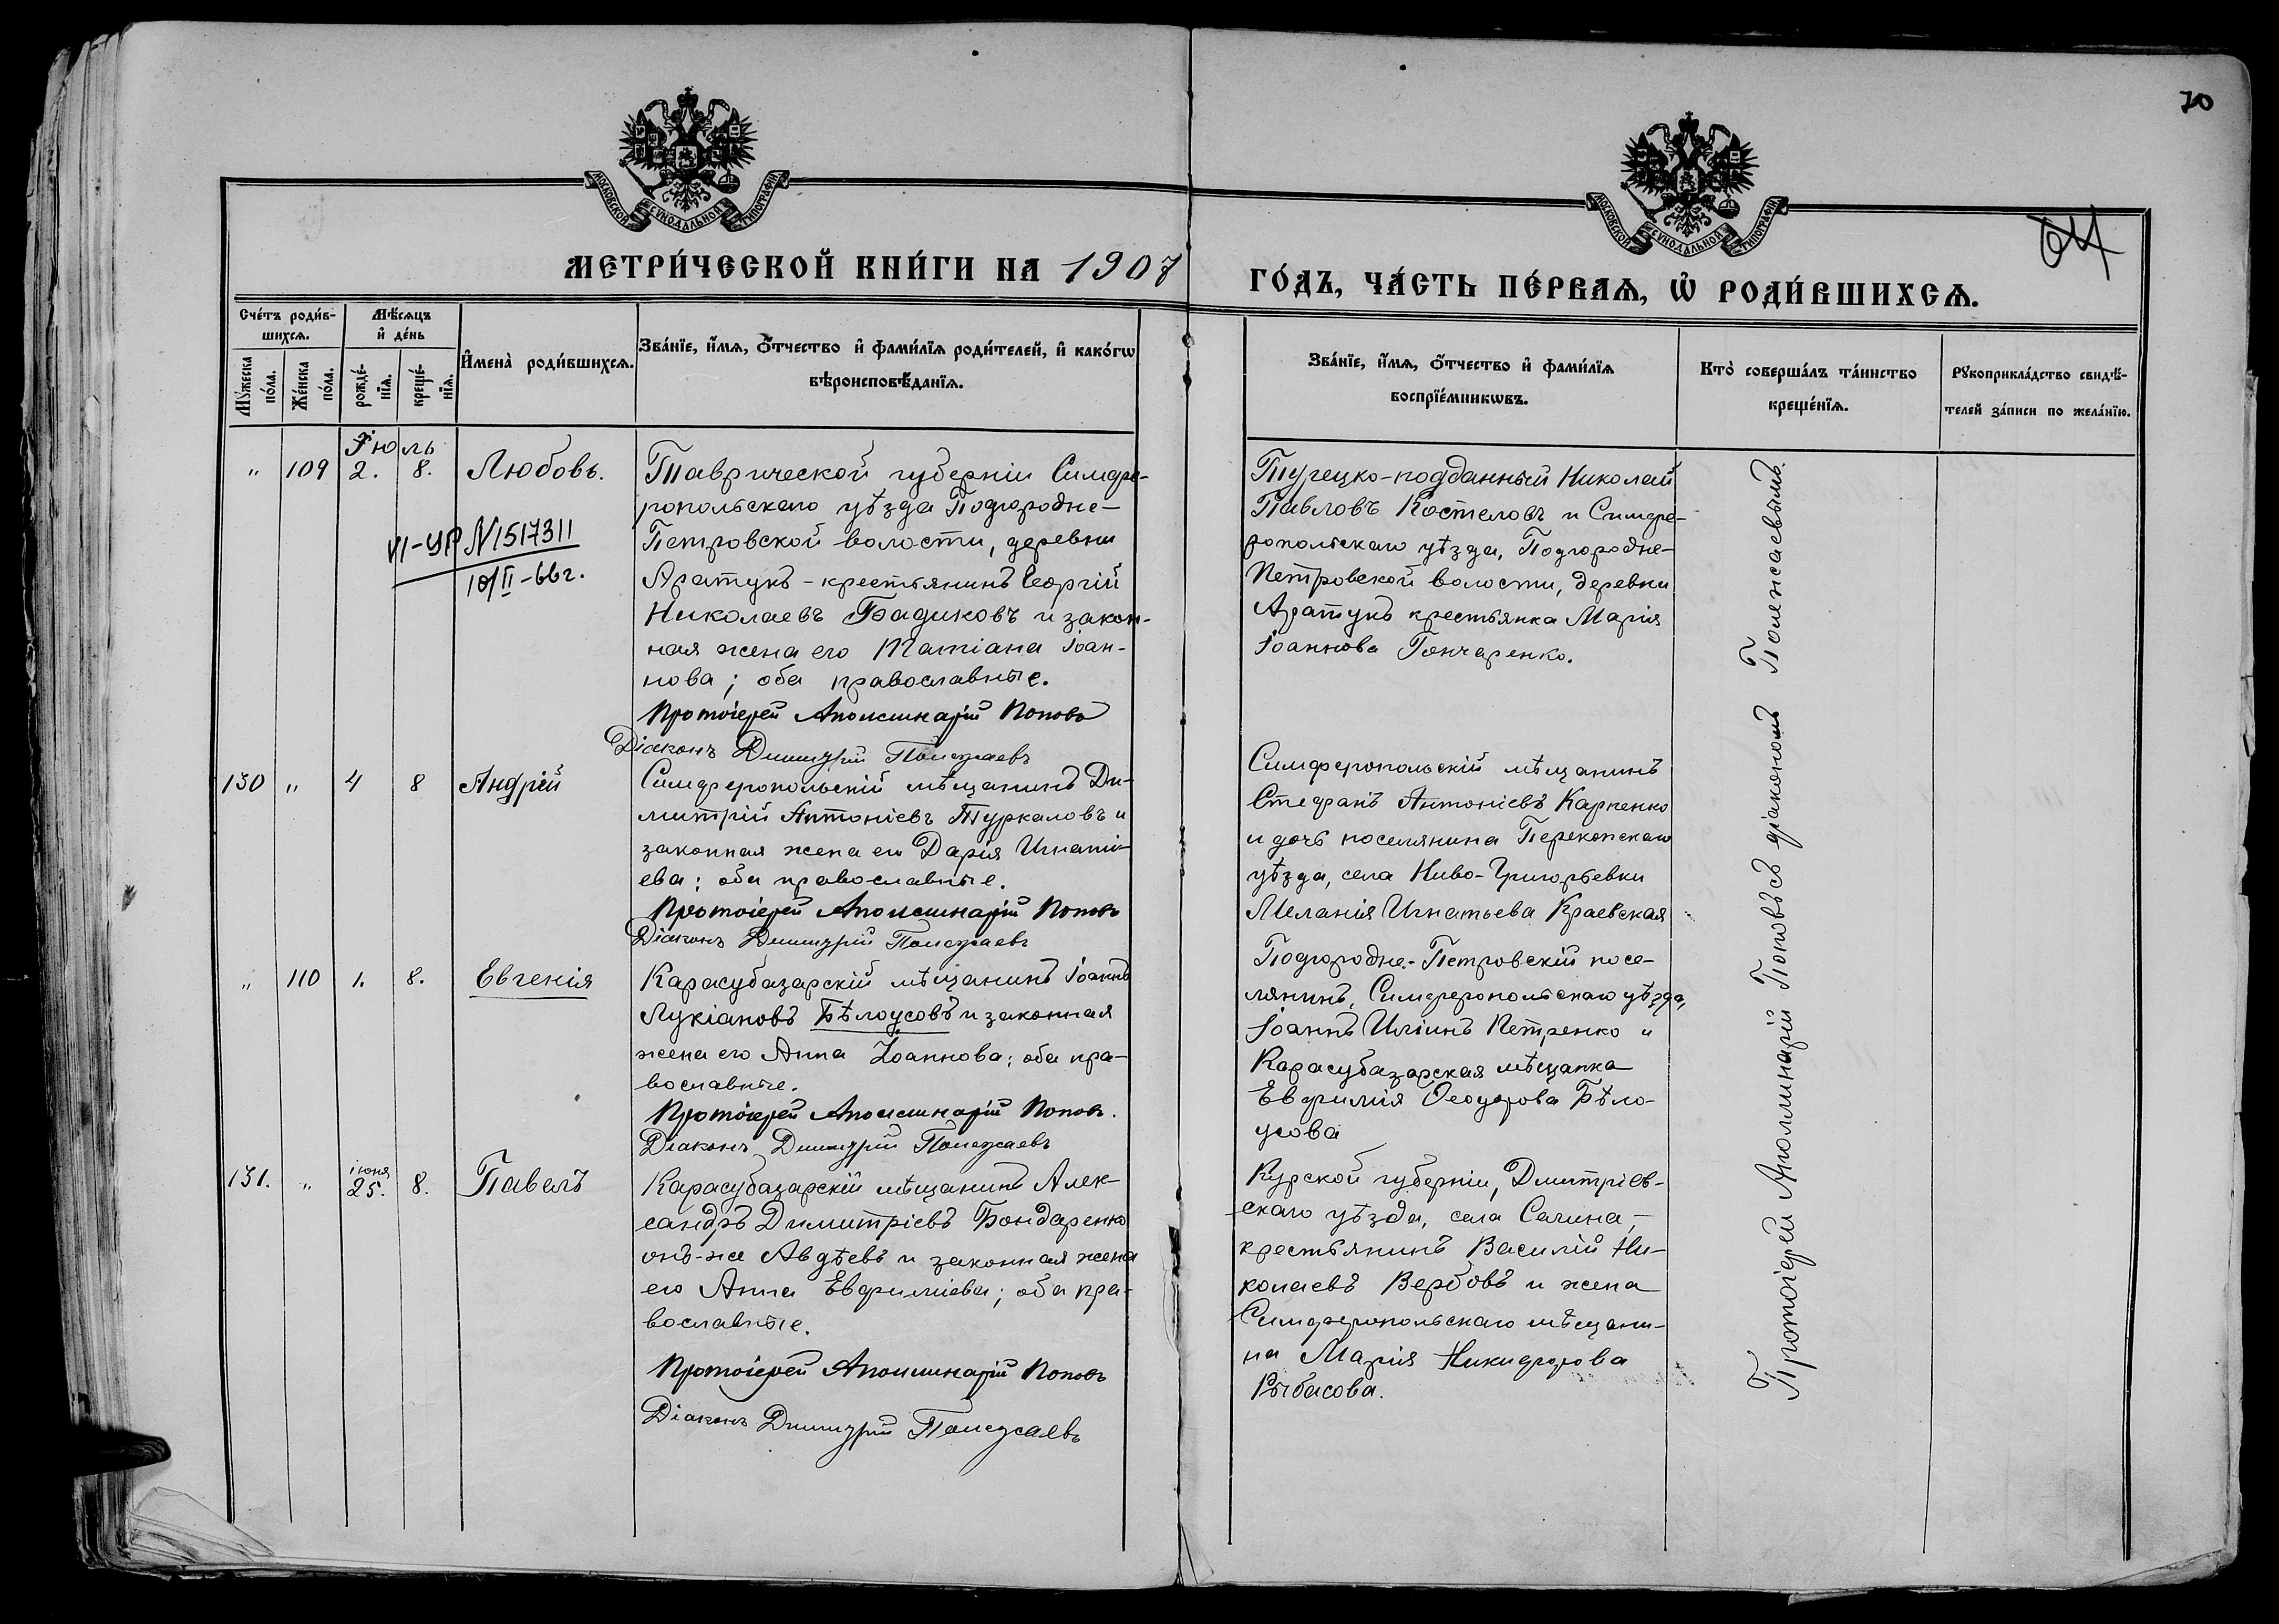 70
МОСКОВСКОЙ СѴНОДАЛЬНОЙ ТИПОГРАФІИ
МОСКОВСКОЙ СѴНОДАЛЬНОЙ ТИПОГРАФІИ
МЕТРИ́ЧЕСКОЙ КНИ́ГИ НА 1907
ГО́ДЪ, ЧА́СТЬ ПЕ́РВАѦ, Ѡ҆ РОДИ́ВШИХСѦ.
Сче́тъ роди́в-
шихсѧ.
Мѣ́сѧцъ
и҆ де́нь
Мꙋжеска
по́ла.
Же́нска
по́ла.
рожде́-
нїѧ.
креще́-
нїѧ.
И҆мена̀ роди́вшихсѧ.
Зва́нїе, и҆́мѧ, ѻ҆́тчество и҆ фами́лїѧ роди́телей, и҆ како́гѡ
вѣроисповѣ́данїѧ.
Зва́нїе, и҆́мѧ, ѻ҆́тчество и҆ фами́лїѧ
воспрїе́мникѡвъ.
Кто̀ соверша́лъ та́инство
креще́нїѧ.
Рꙋкоприкла́дство свидѣ́-
телей за́писи по жела́нїю.
Іюль
" 109 2. 8. Любовь.
Таврической губерніи Симфе-
ропольскаго уѣзда Подгородне-
Петровской волости, деревни
Аратукъ - крестьянинъ Георгій
Николаевъ Бадиковъ и закон-
ная жена его Татіана Іоан-
нова; оба православные.
Протоіерей Аполлинарій Поповъ
Діаконъ Димитрій Полежаевъ
VI-УР N1517311
10/II-66г.
Турецко-подданный Николай
Павловъ Костеловъ и Симфе-
ропольскаго уѣзда, Подгородне-
Петровской волости, деревни
Аратукъ крестьянка Марія
Іоаннова Гончаренко.
130 " 4 8 Андрей
Симферопольскій мѣщанинъ Ди-
митрій Антоніевъ Туркаловъ и
законная жена его Дарія Игнаті-
ева; оба православные.
Протоіерей Аполлинарій Поповъ
Діаконъ Димитрій Полежаевъ
Симферопольскій мѣщанинъ
Стефанъ Антоніевъ Карпенко
и дочь поселянина Перекопскаго
уѣзда, села Ново-Григорьевки
Меланія Игнатьева Краевская
" 110 1. 8. Евгенія
Карасубазарскій мѣщанинъ Іоаннъ
Лукіановъ Бѣлоусовъ и законная
жена его Анна Іоаннова; оба пра-
вославные.
Протоіерей Аполлинарій Поповъ.
Діаконъ Димитрій Полежаевъ
Подгородне-Петровскій посе-
лянинъ, Симферопольскаго уѣзда,
Іоаннъ Иліинъ Петренко и
Карасубазарская мѣщанка
Евфимія Ѳеодорова Бѣло-
усова
131. " іюня 25. 8. Павелъ
Карасубазарскій мѣщанинъ Алек-
сандръ Димитріевъ Бондаренко
онъ-же Авдѣевъ и законная жена
его Анна Евфиміева; оба пра-
вославные.
Протоіерей Аполлинарій Поповъ
Діаконъ Димитрій Полежаевъ
Курской губерніи, Дмитріев-
скаго уѣзда, села Салина,-
крестьянинъ Василій Ни-
колаевъ Вербовъ и жена
Симферопольскаго мѣщани-
на Марія Никифорова
Рыбасова.
Протоіерей Аполлинарій Поповъ съ діакономъ Полежаевымъ.